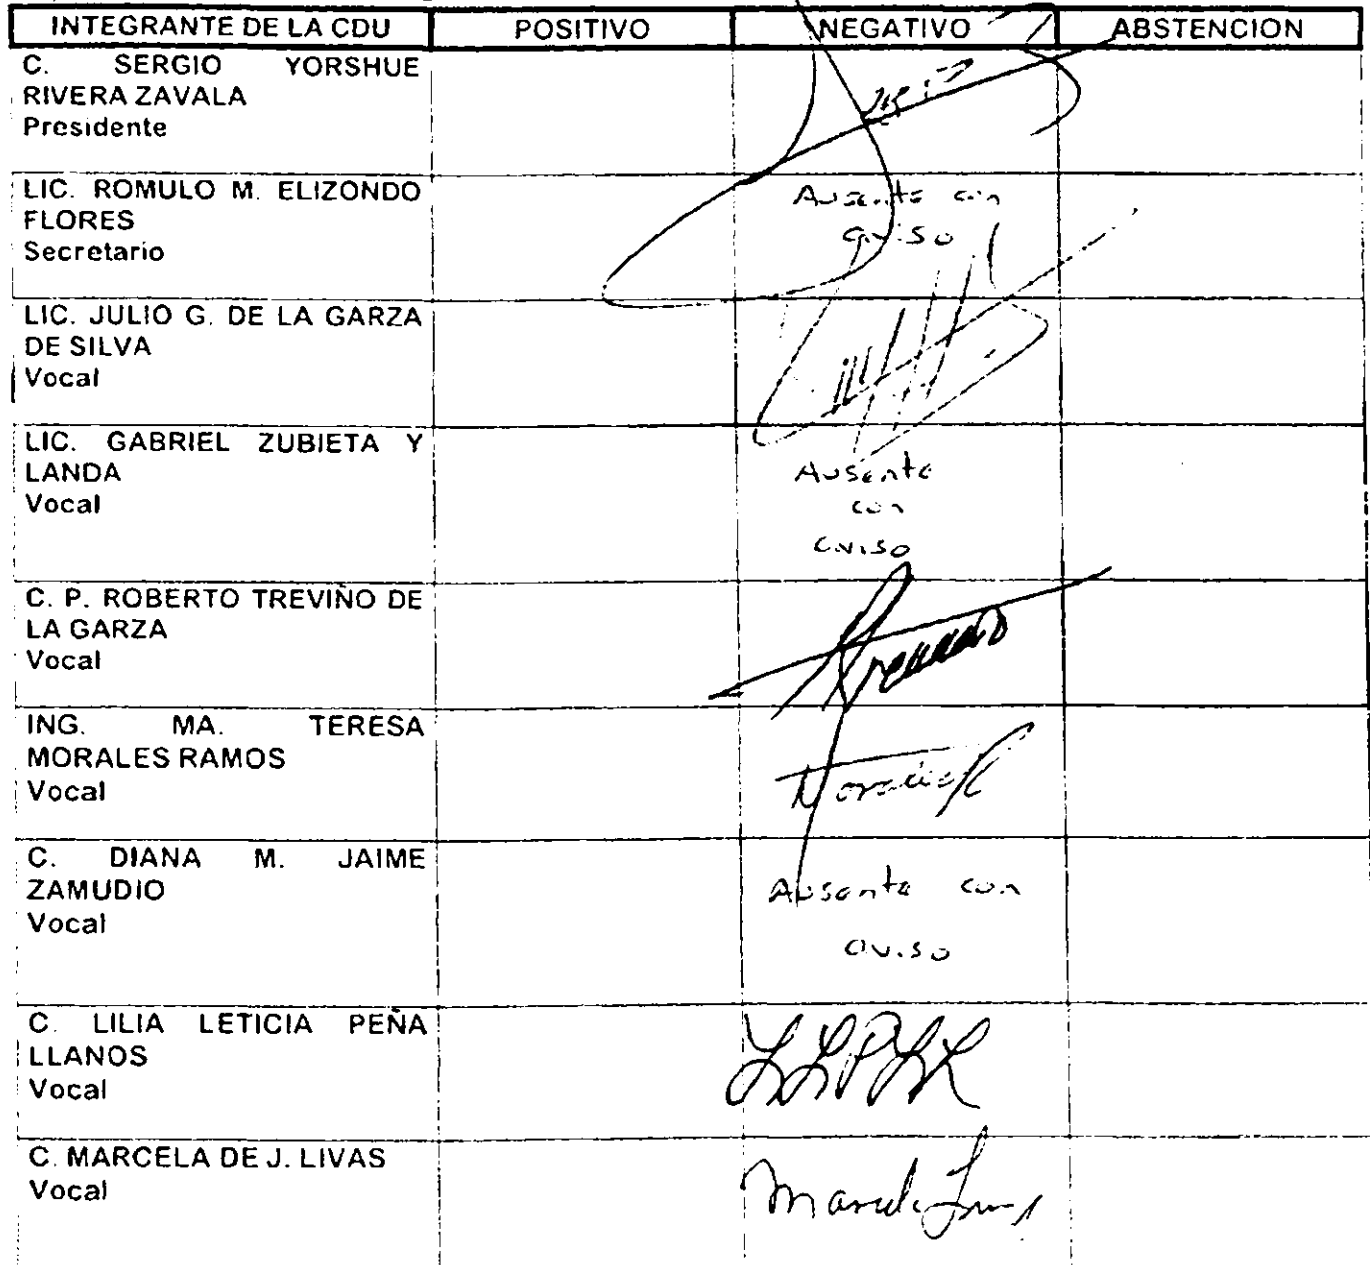 INTEGRANTE DE LA CDU POSITIVO NEGATIVO ABSTENCION
C. SERGIO YORSHUE
RIVERA ZAVALA
Presidente
LIC. ROMULO M. ELIZONDO
FLORES
Secretario
Ausente con
aviso
LIC. JULIO G. DE LA GARZA
DE SILVA
Vocal
LIC. GABRIEL ZUBIETA Y
LANDA
Vocal
Ausente
con
aviso
C. P. ROBERTO TREVIÑO DE
LA GARZA
Vocal
ING. MA. TERESA
MORALES RAMOS
Vocal
Morales R
C. DIANA M. JAIME
ZAMUDIO
Vocal
Ausente con
aviso
C. LILIA LETICIA PEÑA
LLANOS
Vocal
LLPLL
C. MARCELA DE J. LIVAS
Vocal